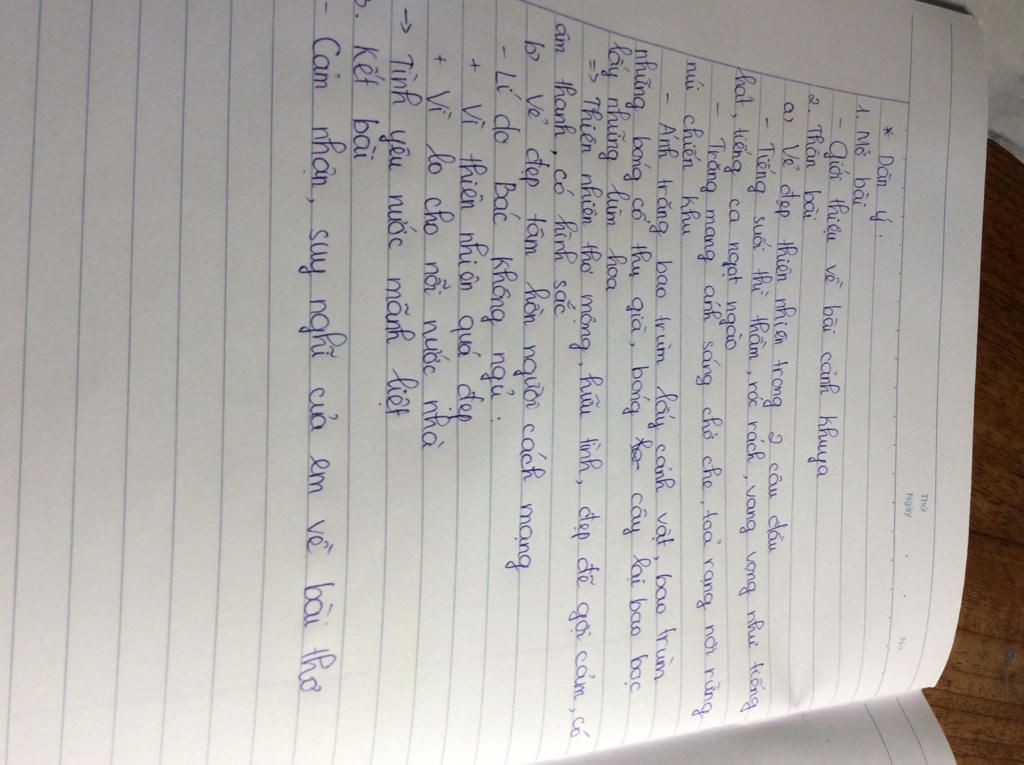 Thứ
Ngày
No.
* Dàn ý:
1. Mở bài
- Giới thiệu về bài cảnh khuya
2. Thân bài
a) Vẻ đẹp thiên nhiên trong 2 câu đầu
- Tiếng suối thì thầm, róc rách, vang vọng như tiếng
hát, tiếng ca ngọt ngào
- Trăng mang ánh sáng chở che, toả rạng nơi rừng
núi chiến khu
- Ánh trăng bao trùm lấy cảnh vật, bao trùm
những bóng cổ thụ già, bóng cây lại bao bạc
lấy những lùm hoa
=> Thiên nhiên thơ mộng, hữu tình, đẹp đẽ gợi cảm, có
âm thanh, có hình sắc
b) Vẻ đẹp tâm hồn người cách mạng
- Lí do Bác không ngủ:
+ Vì thiên nhiên quá đẹp
+ Vì lo cho nỗi nước nhà
→ Tình yêu nước mãnh liệt
3. Kết bài
- Cảm nhận, suy nghĩ của em về bài thơ